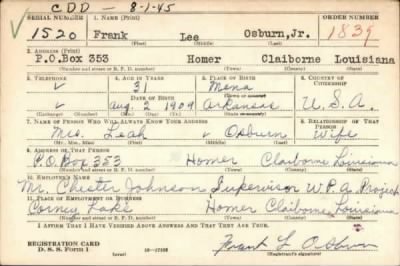 CDD - 8-1-45
SERIAL NUMBER 1. NAME (Print) ORDER NUMBER
1520 Frank Lee Osburn, Jr. 1839
(First) (Middle) (Last)
2. ADDRESS (Print)
P.O. Box 353 Homer Claiborne Louisiana
(Number and street or R. F. D. number) (Town) (County) (State)
3. TELEPHONE 4. AGE IN YEARS 5. PLACE OF BIRTH 6. COUNTRY OF CITIZENSHIP
31 Mena
DATE OF BIRTH (Town or county)
Aug. 2 1909 Arkansas U.S.A.
(Exchange) (Number) (Mo.) (Day) (Yr.) (State or country)
7. NAME OF PERSON WHO WILL ALWAYS KNOW YOUR ADDRESS 8. RELATIONSHIP OF THAT PERSON
Mrs. Leah Osburn Wife
(Mr., Mrs., Miss) (First) (Middle) (Last)
9. ADDRESS OF THAT PERSON
P.O. Box 353 Homer Claiborne Louisiana
(Number and street or R. F. D. number) (Town) (County) (State)
10. EMPLOYER'S NAME
Mr. Chester Johnson Supervisor W.P.A. Project
11. PLACE OF EMPLOYMENT OR BUSINESS
Corney Lake Homer Claiborne Louisiana
(Number and street or R. F. D. number) (Town) (County) (State)
I AFFIRM THAT I HAVE VERIFIED ABOVE ANSWERS AND THAT THEY ARE TRUE.
REGISTRATION CARD
D. S. S. Form 1 (over) Frank L Osburn
(Registrant's signature)